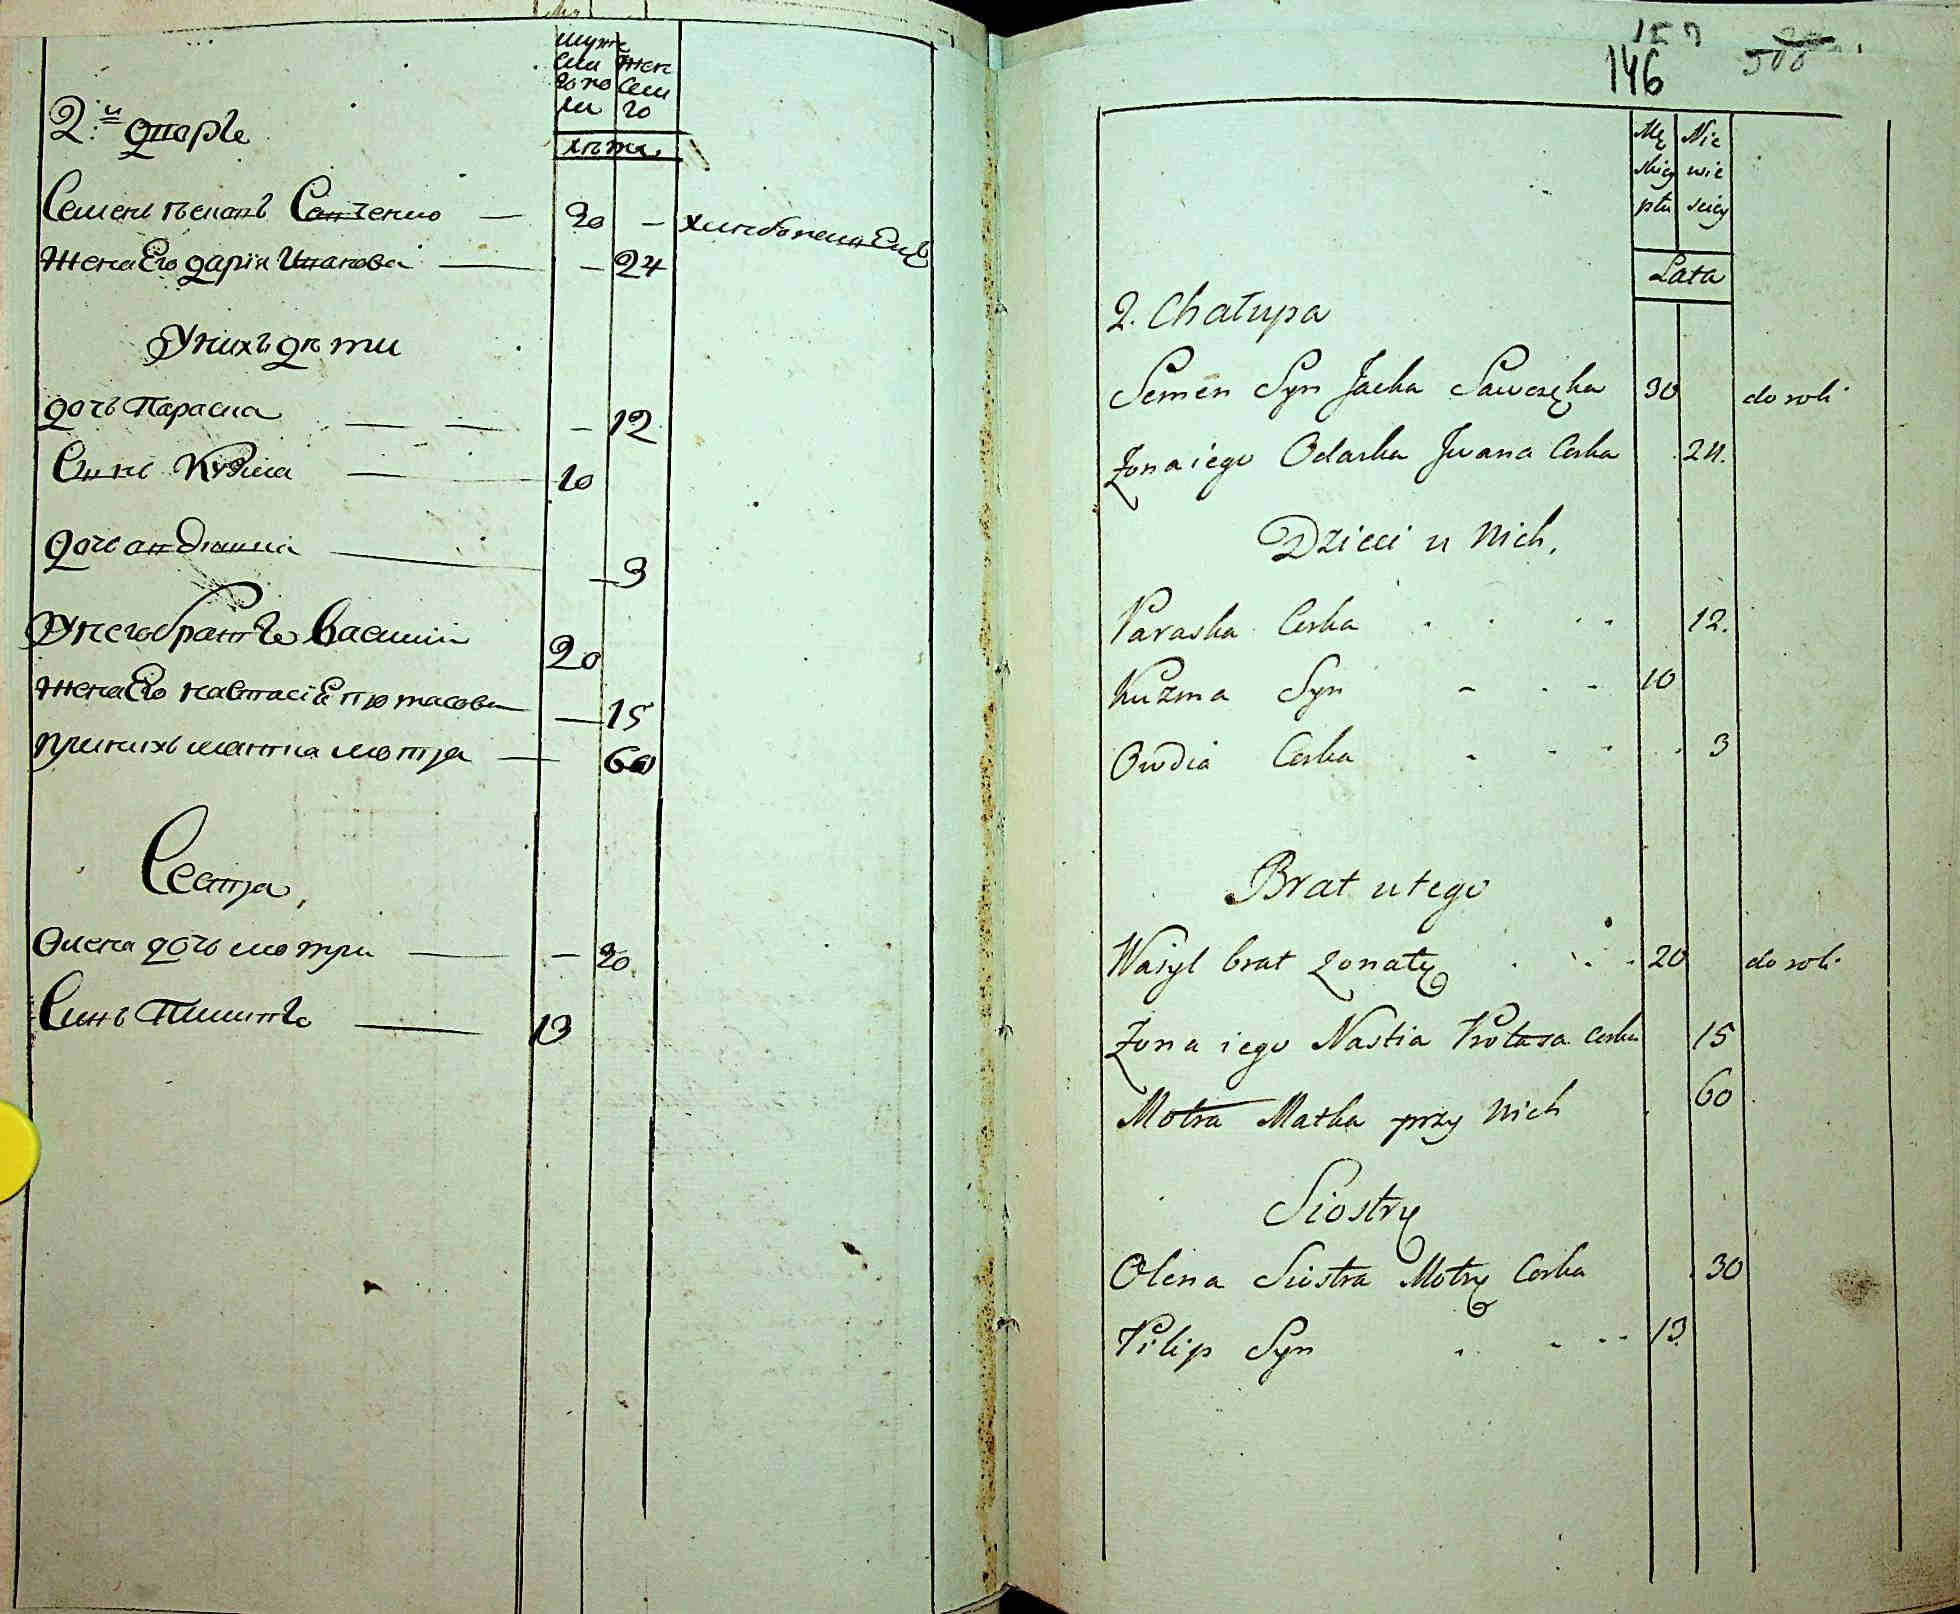 муже
ска
го по
ла
жен
ска
го
лѣта
2.й дворъ
Семенъ Савченко — 30 — хлѣбопашецъ
жена Его дарія Иванова — 24
У нихъ дѣти
дочь Параска — 12
Синъ Кузма — 10
дочь — 3
У него братъ василій 20
жена Его настасіѧ — 15
при нихъ матка мотра — 60
Сестра,
Олена дочь мотри — 30
Синъ Пилипъ — 13
157
146
500
Mę
skiey
płci
Nie
wie
sciey
Lata
2. Chałupa
Semen Syn Jacka Sawczęka 30 do roli
Żona iego Odarka Jwana Corka 24.
Dzieci u Nich.
Paraska Corka 12.
Kuzma Syn 10
Owdia Corka 3
Brat u tego
Wasyl brat żonaty 20 do roli
Żona iego Nastia Protasa Corka 15
Motra Matka przy Nich 60
Siostry
Olena Siostra Motry Corka 30
Pilip Syn 13